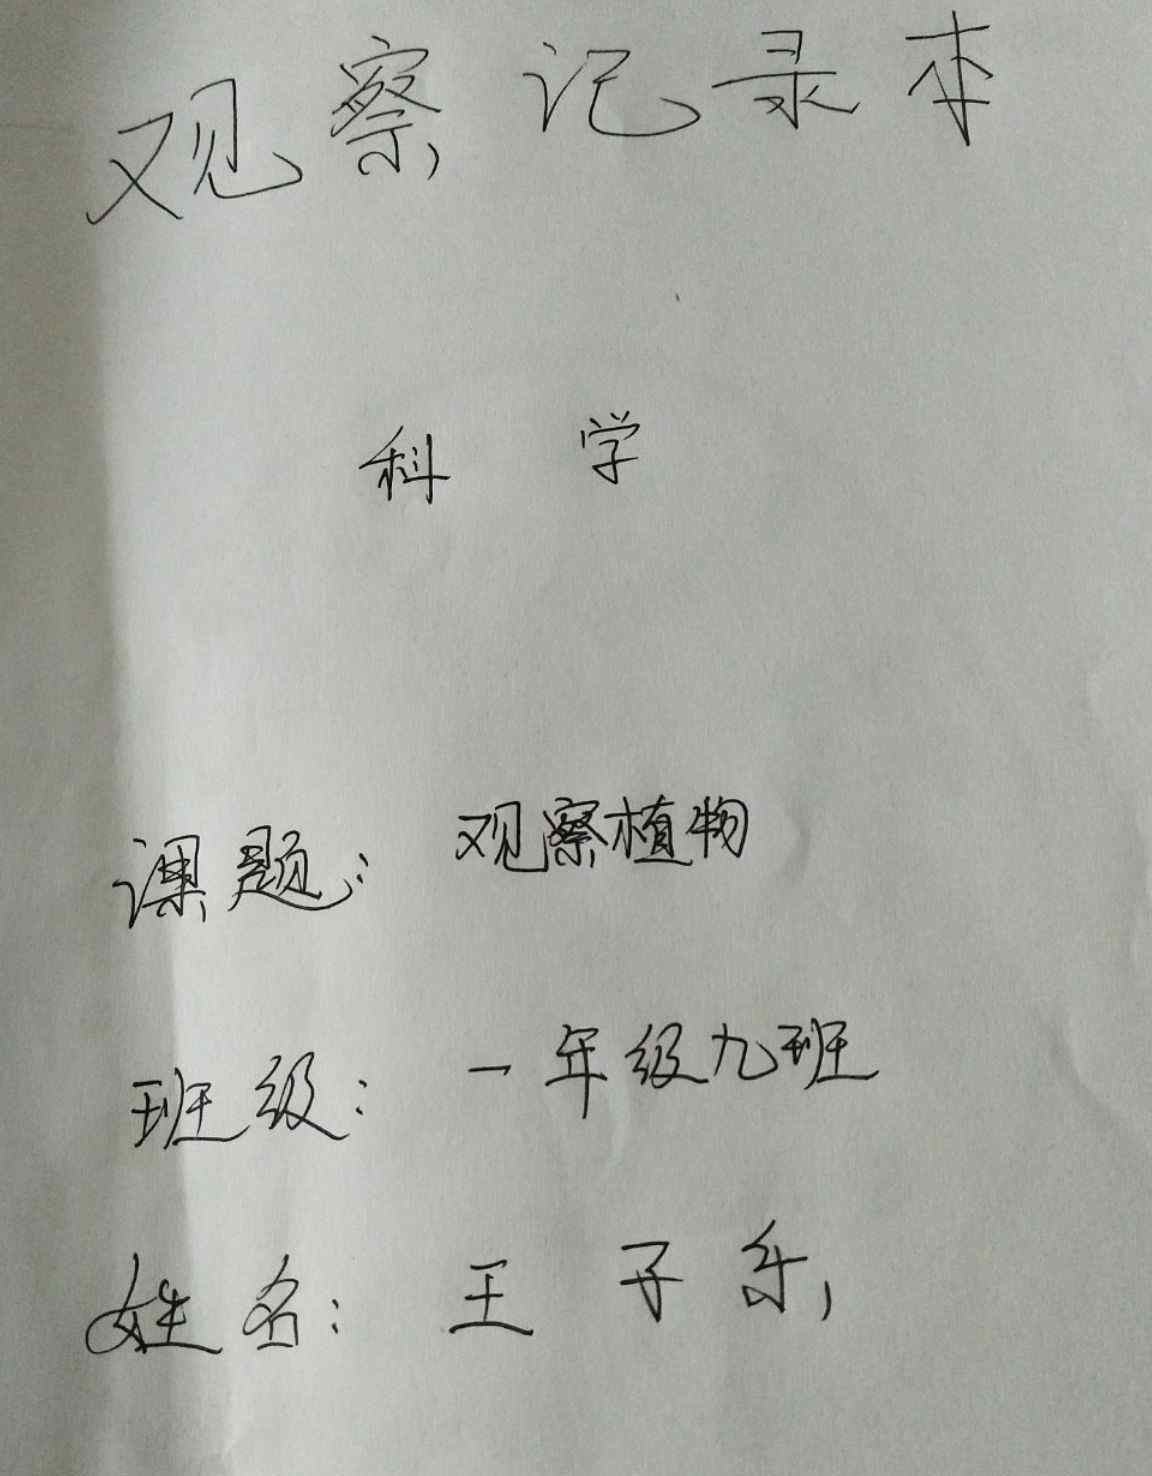 观察记录本
科学
课题：观察植物
班级：一年级九班
姓名：王子乐